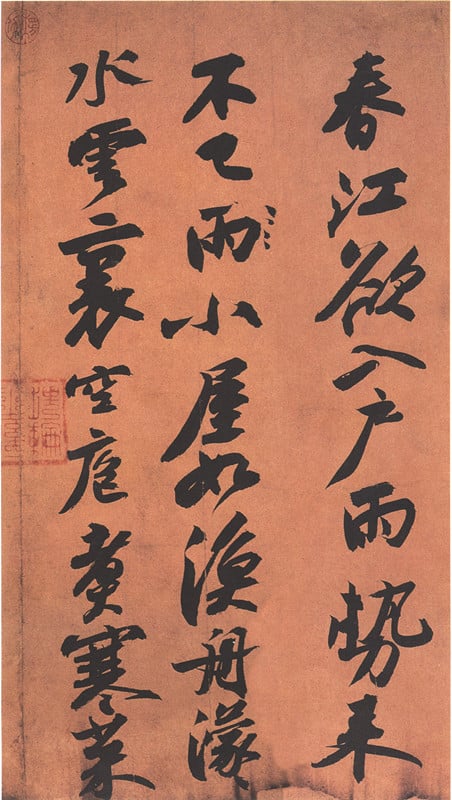 春江欲入戶雨勢来
不已雨小屋如漁舟濛々
水雲裏空庖煑寒菜